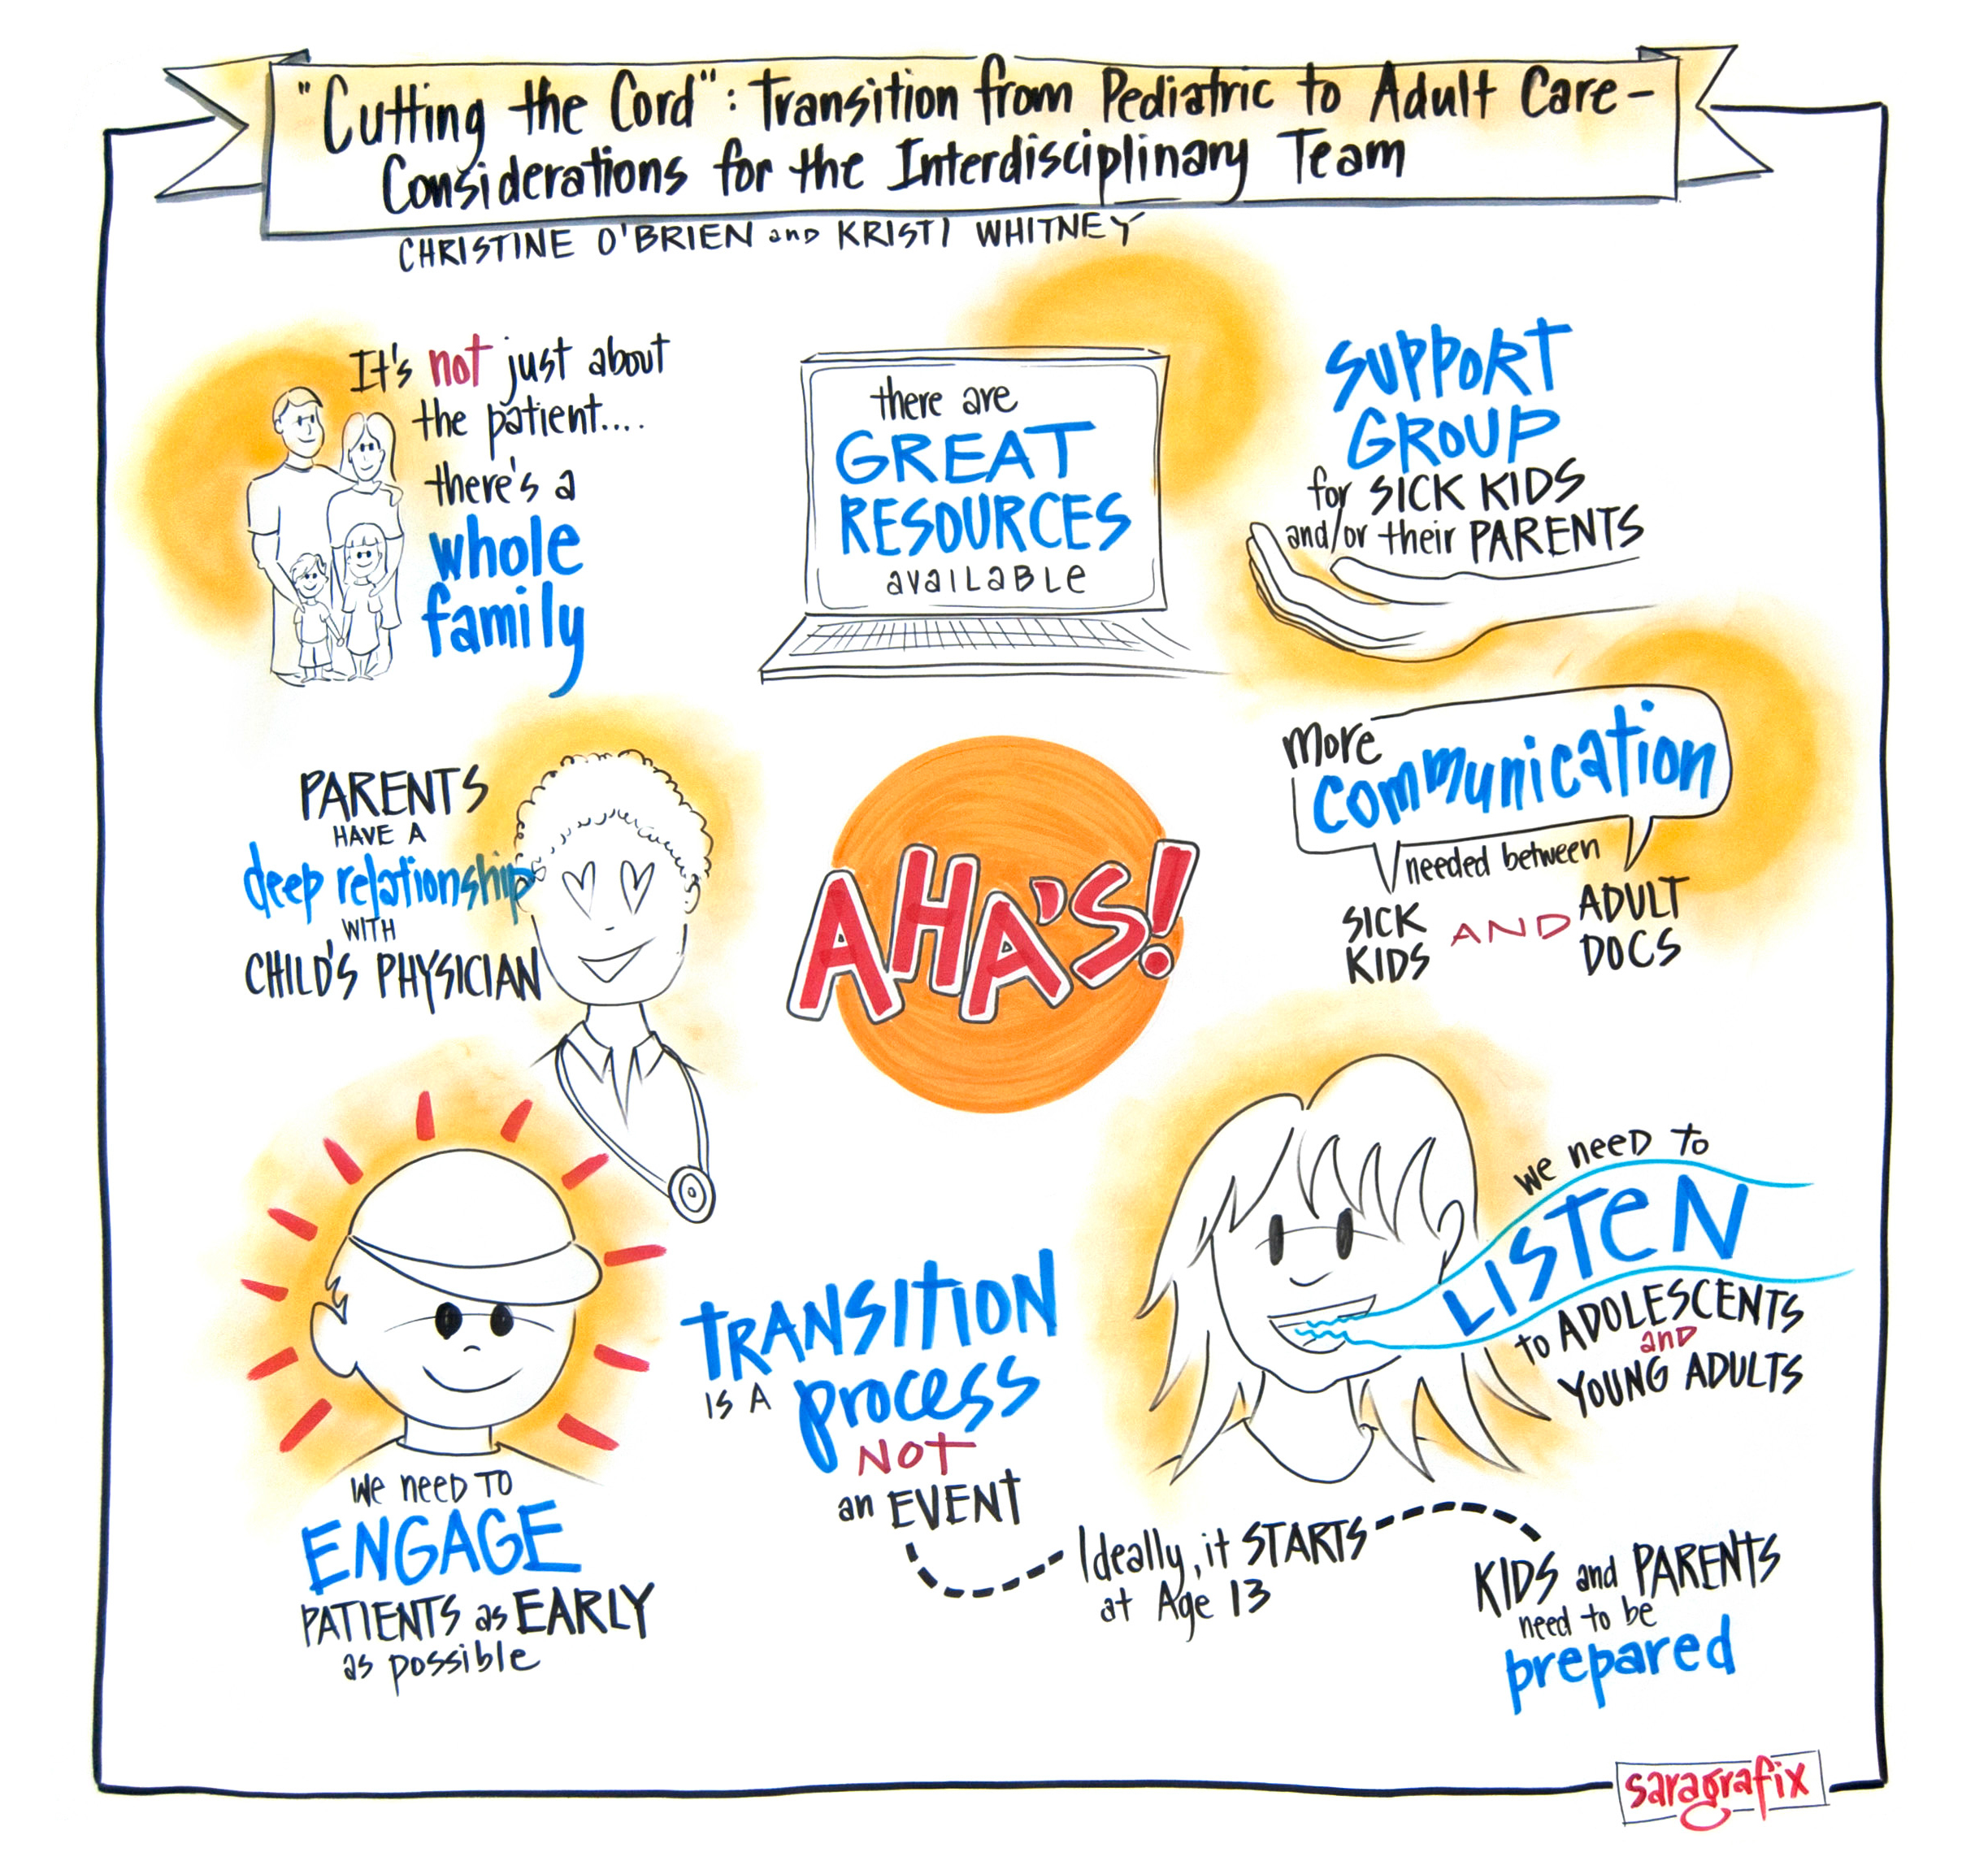 "Cutting the Cord": Transition from Pediatric to Adult Care -
Considerations for the Interdisciplinary Team
CHRISTINE O'BRIEN and KRISTI WHITNEY
It's not just about
the patient....
there's a
whole
family
there are
GREAT
RESOURCES
available
SUPPORT
GROUP
for SICK KIDS
and/or their PARENTS
PARENTS
HAVE A
deep relationship
WITH
CHILD'S PHYSICIAN
AHA'S!
more
communication
needed between
SICK
KIDS
AND
ADULT
DOCS
We need to
ENGAGE
PATIENTS as EARLY
as possible
TRANSITION
IS A process
NOT
an EVENT
Ideally, it STARTS
at Age 13
KIDS and PARENTS
need to be
prepared
We need to
LISTEN
to ADOLESCENTS
and
YOUNG ADULTS
saragrafix